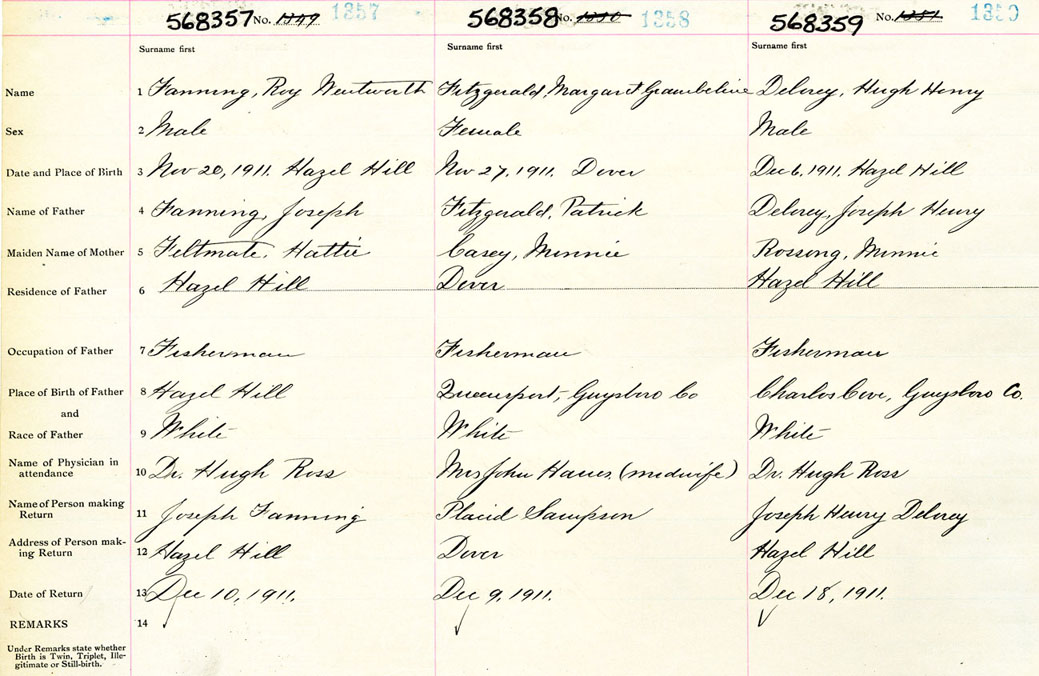 568357 No. 1349 1357 568358 No. 1350 1358 568359 No. 1351 1359
Surname first Surname first Surname first
Name 1 Fanning, Roy Wentworth Fitzgerald, Margaret Delorey, Hugh Henry
Sex 2 Male Female Male
Date and Place of Birth 3 Nov 20, 1911. Hazel Hill Nov 27, 1911. Dover Dec 6, 1911. Hazel Hill
Name of Father 4 Fanning, Joseph Fitzgerald, Patrick Delorey, Joseph Henry
Maiden Name of Mother 5 Feltmate, Hattie Casey, Minnie Rossong, Minnie
Residence of Father 6 Hazel Hill Dover Hazel Hill
Occupation of Father 7 Fisherman Fisherman Fisherman
Place of Birth of Father 8 Hazel Hill Queensport, Guysboro Co Charlos Cove, Guysboro Co.
and
Race of Father 9 White White White
Name of Physician in
attendance 10 Dr. Hugh Ross Mrs John (midwife) Dr. Hugh Ross
Name of Person making
Return 11 Joseph Fanning Placid Sampson Joseph Henry Delorey
Address of Person mak-
ing Return 12 Hazel Hill Dover Hazel Hill
Date of Return 13 Dec 10, 1911. Dec 9, 1911. Dec 18, 1911.
REMARKS 14
Under Remarks state whether
Birth is Twin, Triplet, Ille-
gitimate or Still-birth.